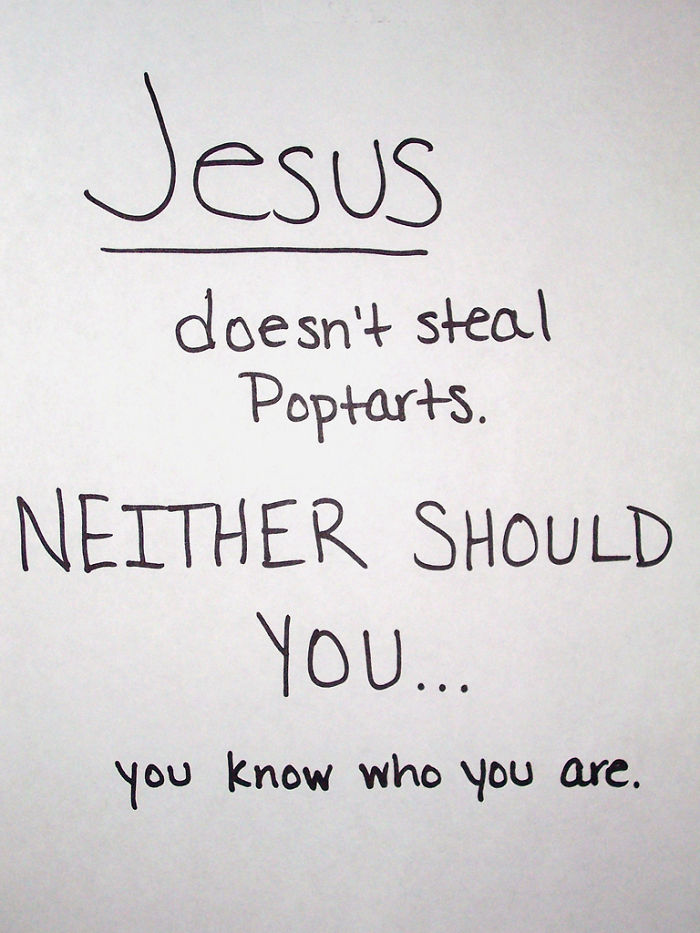 Jesus
doesn't steal
Poptarts.
NEITHER SHOULD
YOU...
you know who you are.